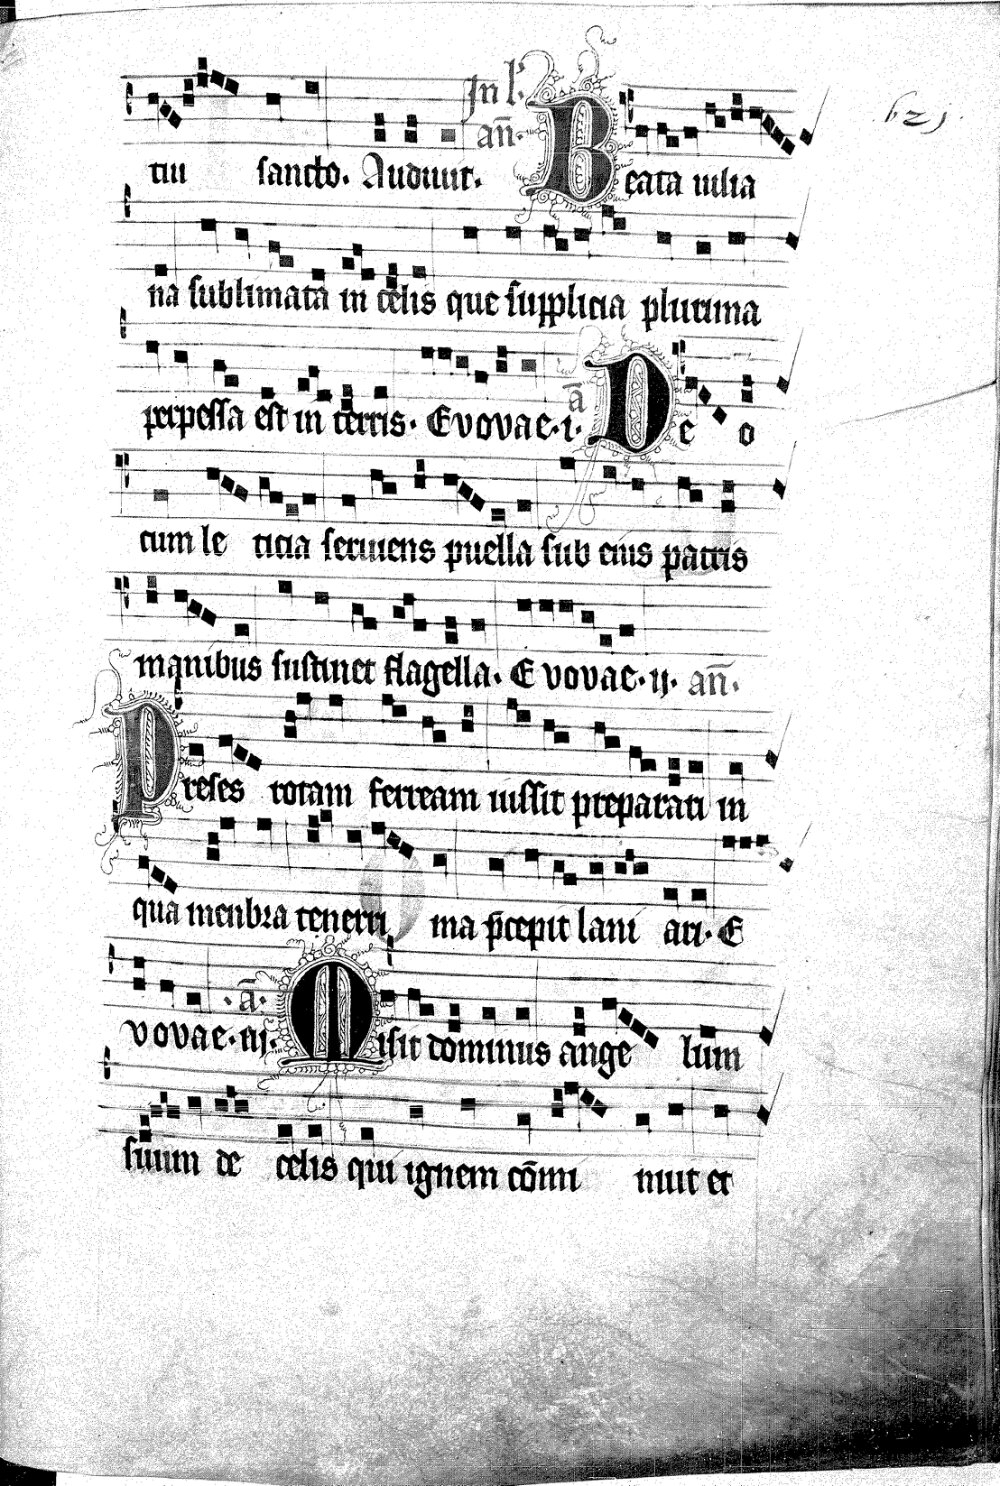 In l'.
tui sancto. Audiuit. an̄. Beata iulia
na sublimata in celis que supplicia plurima
perpessa est in terris. Evovae. i. ā Deo
cum le ticia seruiens puella sub eius patris
manibus sustinet flagella. Evovae. ij. an̄.
Preses rotam ferream iussit preparari in
qua menbra tenerri ma p̄cepit lani ari. E
vovae. iij. a. Misit dominus ange lum
suum de celis qui ignem cōmi nuit et